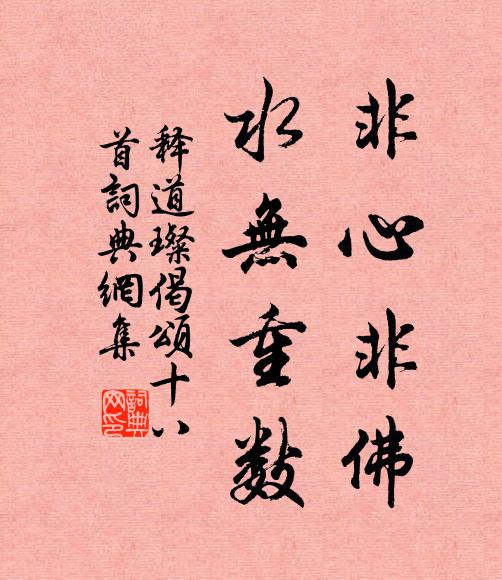 非心非佛
水無重數
释道璨偈頌十八
首詞典網集
詞典網印